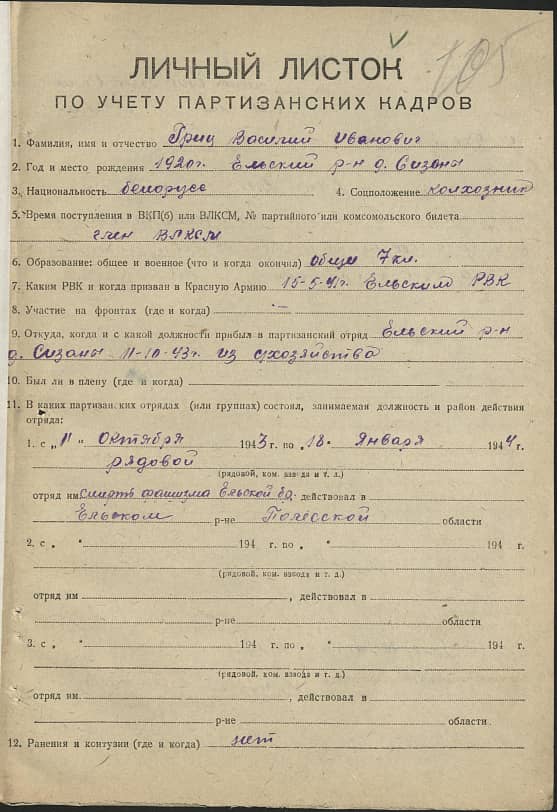 105
ЛИЧНЫЙ ЛИСТОК
ПО УЧЕТУ ПАРТИЗАНСКИХ КАДРОВ
1. Фамилия, имя и отчество Гриц Василий Иванович
2. Год и место рождения 1920г. Ельский р-н д. Сизаны
3. Национальность белорусс 4. Соцположение колхозник
5. Время поступления в ВКП(б) или ВЛКСМ, № партийного или комсомольского билета
член ВЛКСМ
6. Образование: общее и военное (что и когда окончил) общее 7 кл.
7. Каким РВК и когда призван в Красную Армию 15-5-41г. Ельским РВК
8. Участие на фронтах (где и когда) —
9. Откуда, когда и с какой должности прибыл в партизанский отряд Ельский р-н
д. Сизаны 11-10-43г. из с/хозяйства
10. Был ли в плену (где и когда)
11. В каких партизанских отрядах (или группах) состоял, занимаемая должность и район действия
отряда:
1. с „11" октября 1943г. по „18. января 1944г.
рядовой
(рядовой, ком. взвода и т. д.)
отряд им. смерть фашизма Ельской бр. действовал в
Ельском р-не Полесской области
2. с „ " 194 г. по „ " 194 г.
(рядовой, ком. взвода и т. д.)
отряд им , действовал в
р-не области
3. с „ " 194 г. по „ " 194 г.
(рядовой, ком. взвода и т. д.)
отряд им. , действовал в
р-не области.
12. Ранения и контузии (где и когда) нет